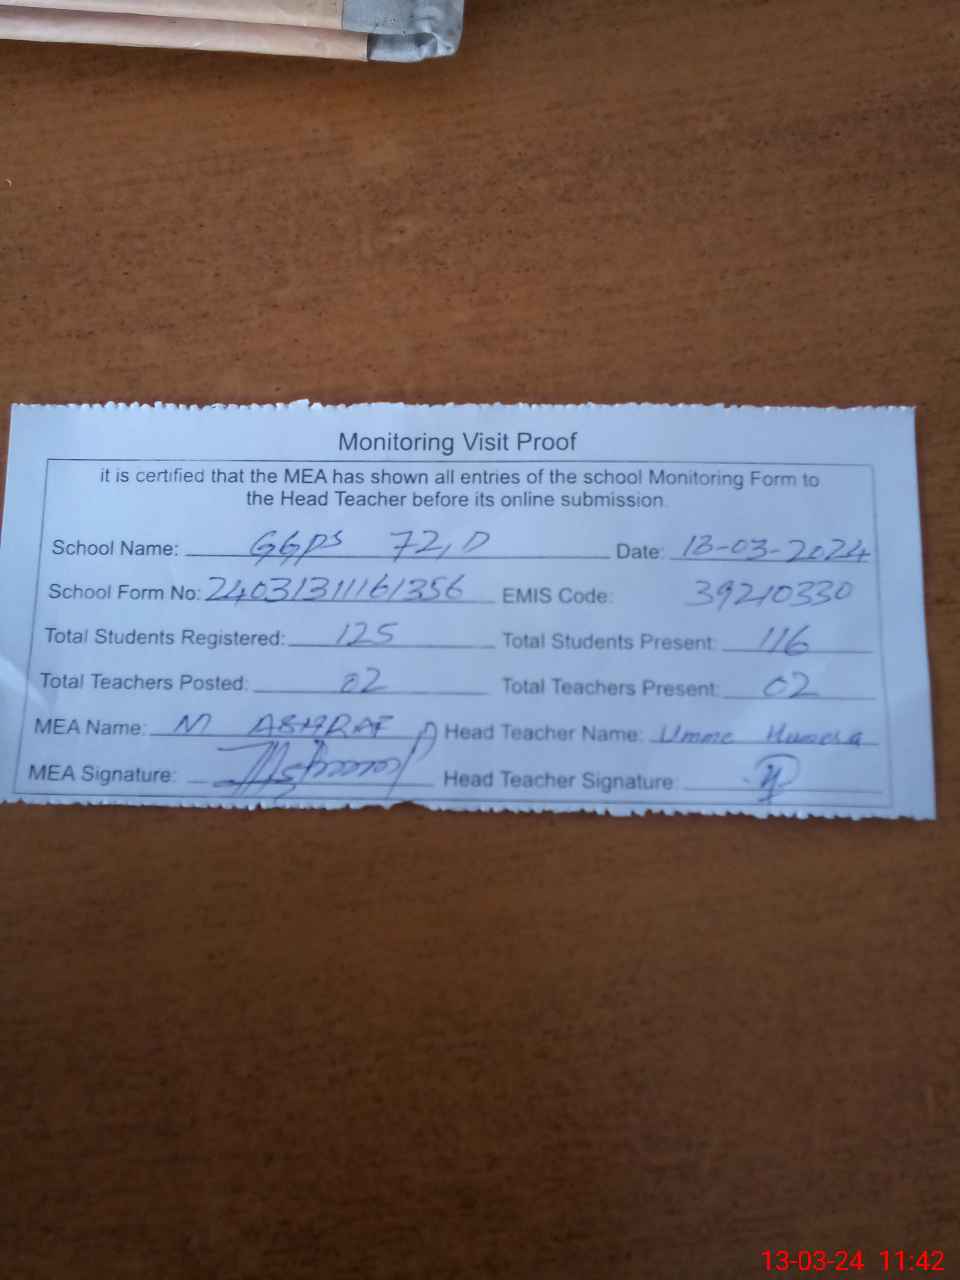 Monitoring Visit Proof
it is certified that the MEA has shown all entries of the school Monitoring Form to
the Head Teacher before its online submission.
School Name: GGPS 72,D Date: 13-03-2024
School Form No: 24031311161356 EMIS Code: 39210330
Total Students Registered: 125 Total Students Present: 116
Total Teachers Posted: 02 Total Teachers Present: 02
MEA Name: M ASHRAF Head Teacher Name: Umme Humera
MEA Signature: Head Teacher Signature:
13-03-24 11:42